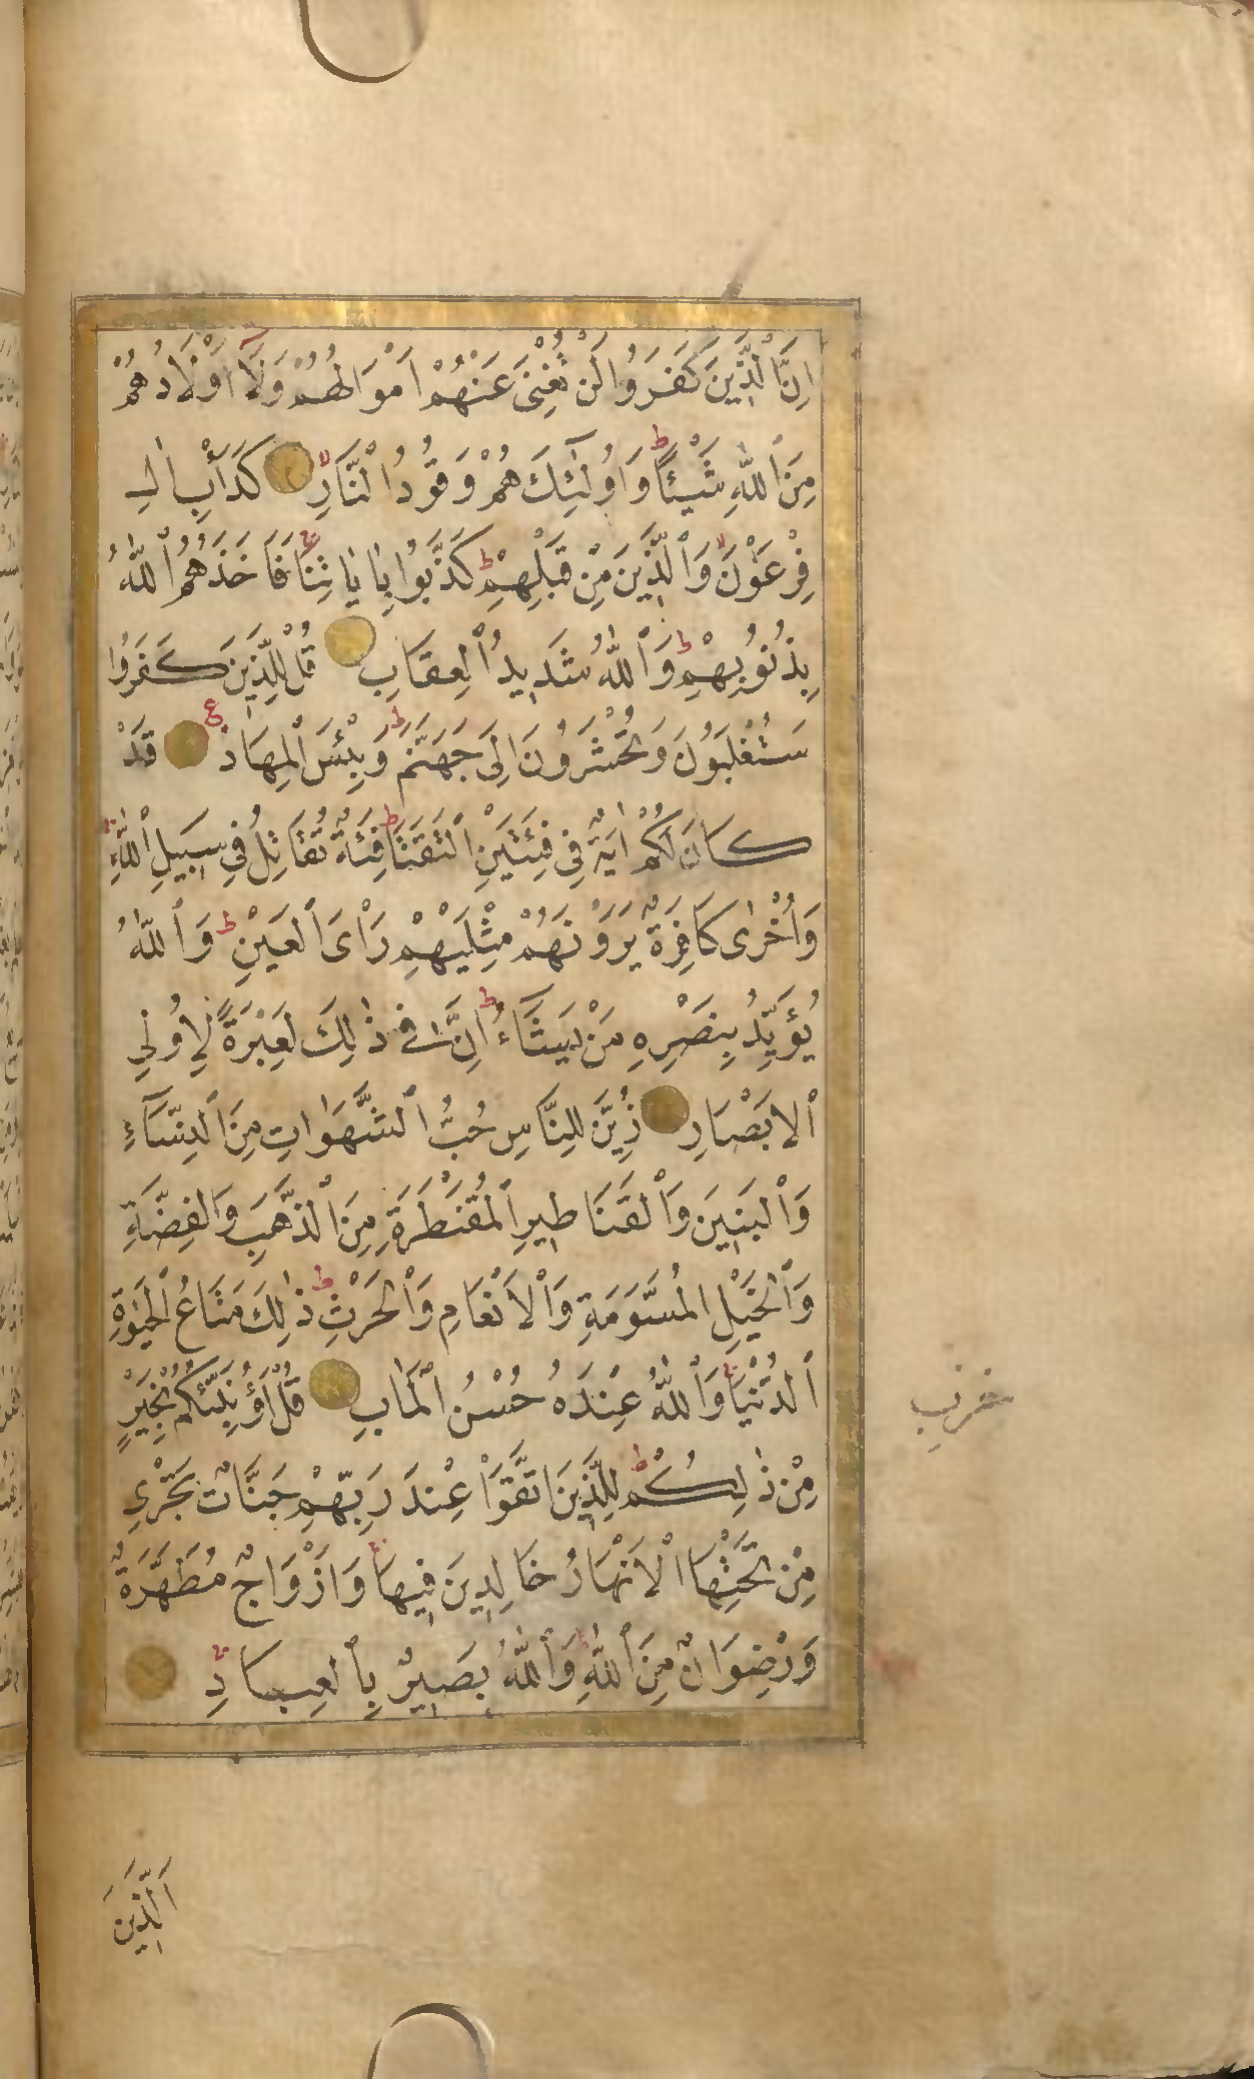 اِنَّ الَّذِينَ كَفَرُوا لَنْ تُغْنِيَ عَنْهُمْ اَمْوَالُهُمْ وَلَا اَوْلَادُهُمْ
مِنَ ٱللّٰهِ شَيْئًا ط وَاُولٰئِكَ هُمْ وَقُودُ النَّارِ لا كَدَأْبِ اٰلِ
فِرْعَوْنَ لا وَٱلَّذِينَ مِنْ قَبْلِهِمْ ط كَذَّبُوا بِاٰيَاتِنَا ج فَاَخَذَهُمُ ٱللّٰهُ
بِذُنُوبِهِمْ ط وَٱللّٰهُ شَدِيدُ ٱلْعِقَابِ قُلْ لِلَّذِينَ كَفَرُوا
سَتُغْلَبُونَ وَتُحْشَرُونَ اِلَى جَهَنَّمَ ط وَبِئْسَ ٱلْمِهَادُ ع قَدْ
كَانَ لَكُمْ اٰيَةٌ فِي فِئَتَيْنِ ٱلْتَقَتَا ط فِئَةٌ تُقَاتِلُ فِي سَبِيلِ ٱللّٰهِ
وَاُخْرٰى كَافِرَةٌ يَرَوْنَهُمْ مِثْلَيْهِمْ رَأْىَ ٱلْعَيْنِ ط وَٱللّٰهُ
يُؤَيِّدُ بِنَصْرِهِ مَنْ يَشَاءُ ط اِنَّ فِي ذٰلِكَ لَعِبْرَةً لِاُولِي
ٱلْاَبْصَارِ زُيِّنَ لِلنَّاسِ حُبُّ ٱلشَّهَوَاتِ مِنَ ٱلنِّسَاءِ
وَٱلْبَنِينَ وَٱلْقَنَاطِيرِ ٱلْمُقَنْطَرَةِ مِنَ ٱلذَّهَبِ وَالْفِضَّةِ
وَٱلْخَيْلِ الْمُسَوَّمَةِ وَٱلْاَنْعَامِ وَٱلْحَرْثِ ط ذٰلِكَ مَتَاعُ ٱلْحَيٰوةِ
ٱلدُّنْيَا ج وَٱللّٰهُ عِنْدَهُ حُسْنُ ٱلْمَاٰبِ قُلْ اَؤُنَبِّئُكُمْ بِخَيْرٍ
مِنْ ذٰلِكُمْ ط لِلَّذِينَ اتَّقَوْا عِنْدَ رَبِّهِمْ جَنَّاتٌ تَجْرِي
مِنْ تَحْتِهَا ٱلْاَنْهَارُ خَالِدِينَ فِيهَا وَاَزْوَاجٌ مُطَهَّرَةٌ
وَرِضْوَانٌ مِنَ ٱللّٰهِ وَٱللّٰهُ بَصِيرٌ بِٱلْعِبَادِ ج
اَلَّذِينَ